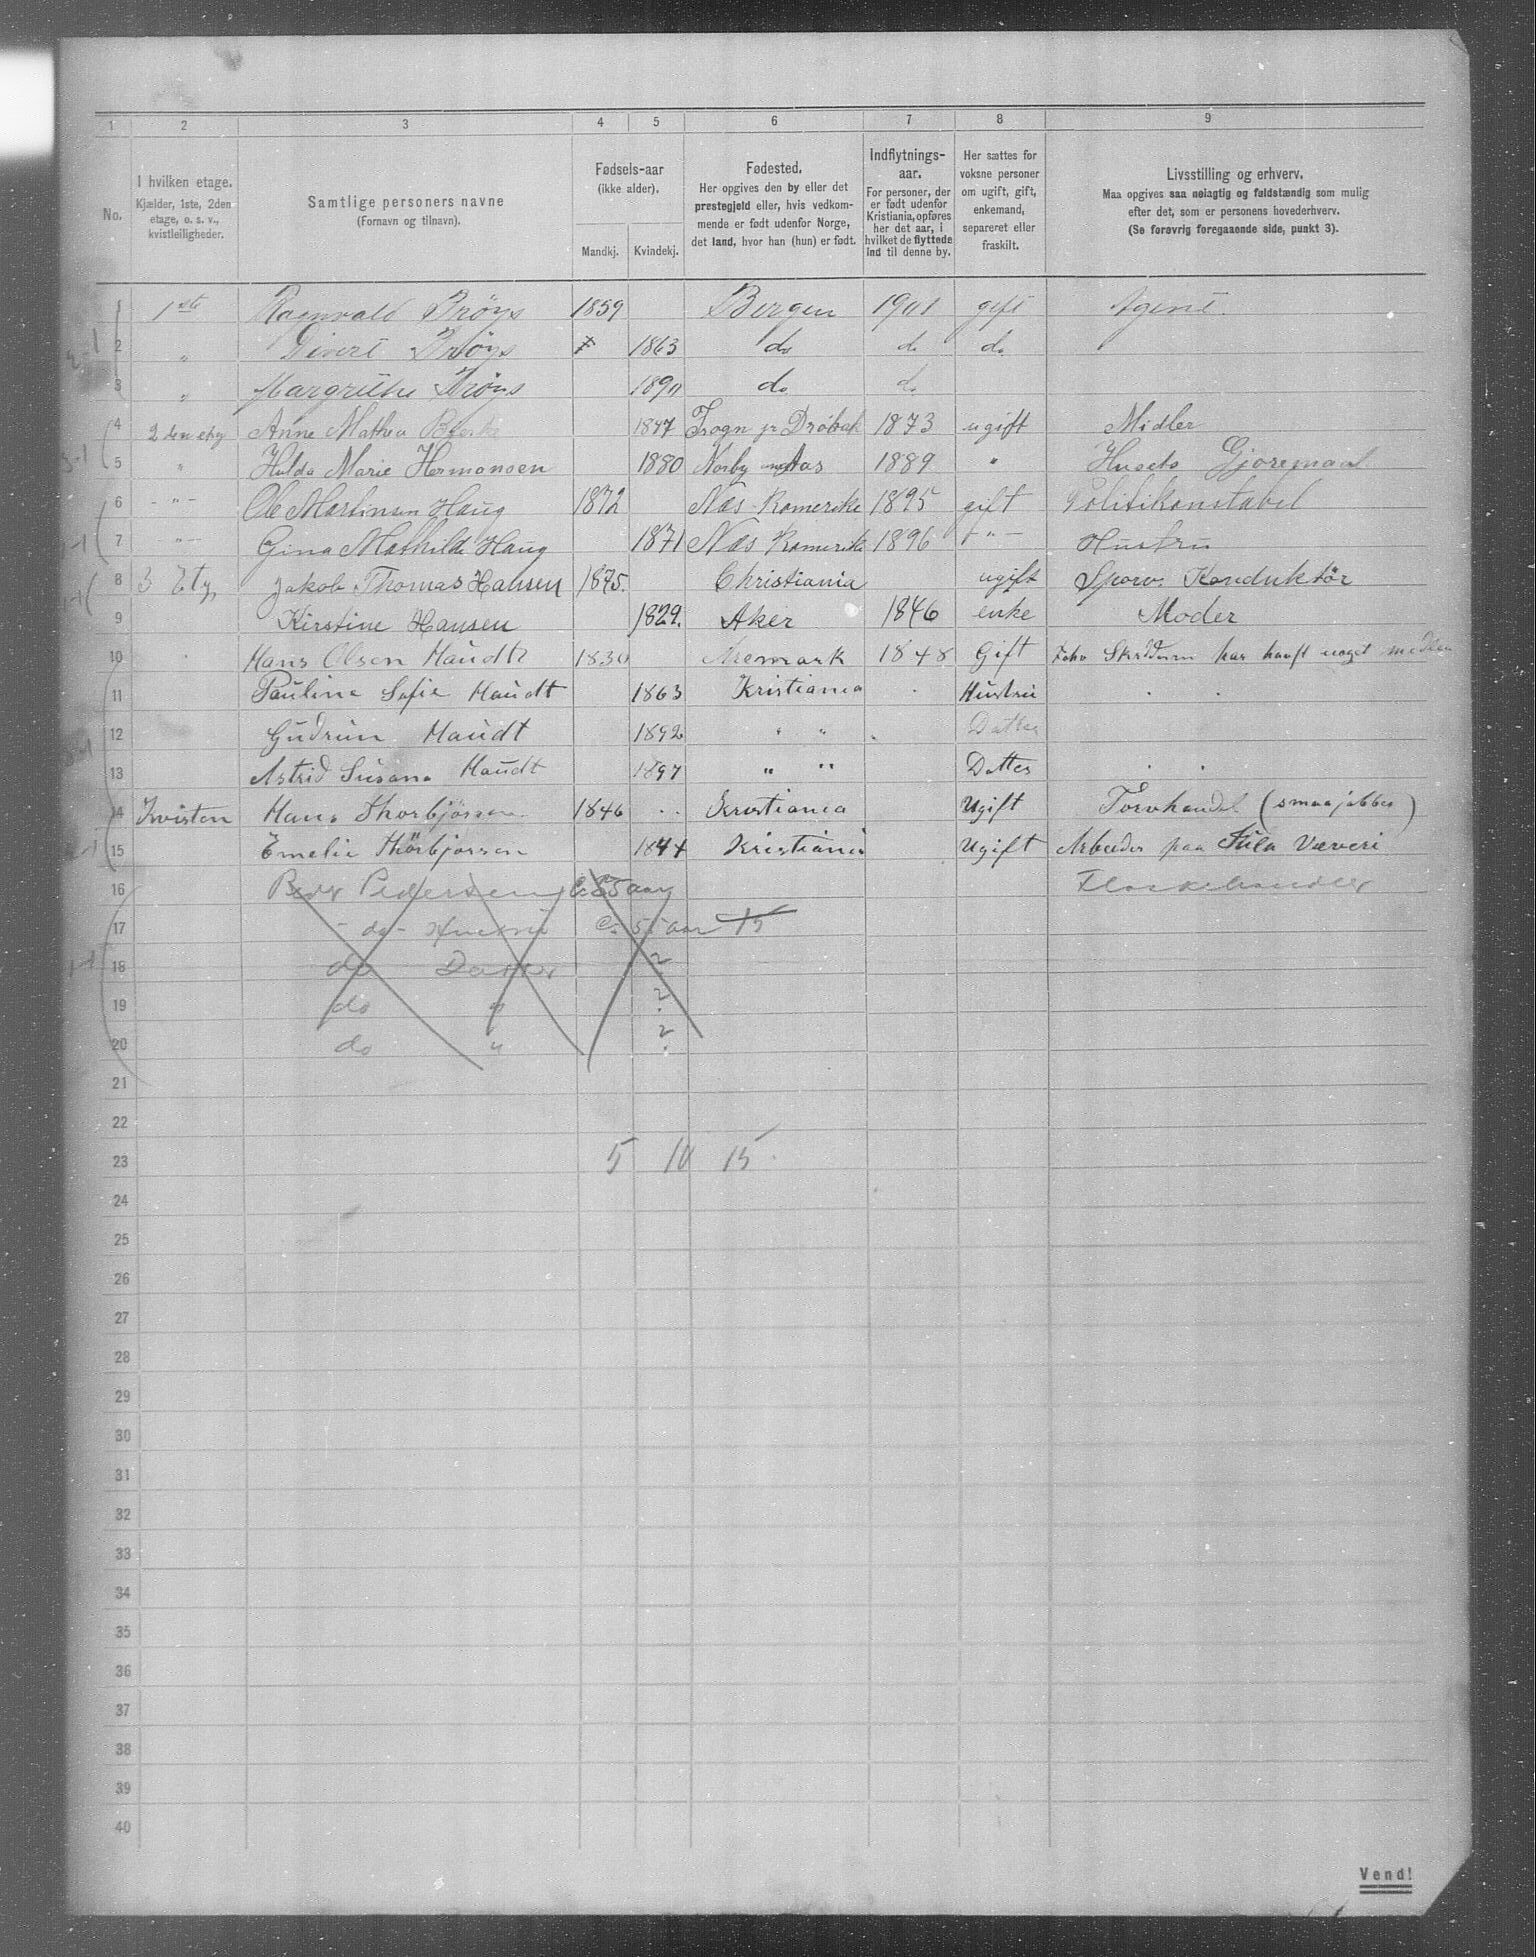 1 2 3 4 5 6 7 8 9
No.
I hvilken etage.
Kjælder, 1ste, 2den
etage, o. s. v.,
kvistleiligheder.
Samtlige personers navne
(Fornavn og tilnavn).
Fødsels-aar
(ikke alder).
Mandkj. Kvindekj.
Fødested.
Her opgives den by eller det
prestegjeld eller, hvis vedkom-
mende er født udenfor Norge,
det land, hvor han (hun) er født.
Indflytnings-
aar.
For personer, der
er født udenfor
Kristiania, opføres
her det aar, i
hvilket de flyttede
ind til denne by.
Her sættes for
voksne personer
om ugift, gift,
enkemand,
separeret eller
fraskilt.
Livsstilling og erhverv.
Maa opgives saa nøiagtig og fuldstændig som mulig
efter det, som er personens hovederhverv.
(Se forøvrig foregaaende side, punkt 3).
1 1ste Ragnvald Brøys 1859 Bergen 1901 gift Agent.
2 " Sivert Brøys 1863 do do do
3 " Margrethe Brøys 1890 do do
4 2den etg Anne Mathea 1847 Frogn pr Drøbak 1873 ugift Midler
5 " Hulda Marie Hermansen 1880 Norby Aas 1889 " Husets Gjøremaal
6 - " - Ole Martinsen Haug 1872 Næs Romerike 1895 gift Politikonstabel
7 - " - Gina Mathilde Haug 1871 Næs Romerike 1896 - " - Hustru
8 3 Etg. Jakob Thomas Hansen 1875. Christiania ugift Sporv. Konduktør
9 Kirstine Hansen 1829. Aker 1846 enke Moder
10 Hans Olsen Haudt 1830 Aremark 1848 Gift har havt noget
11 Pauline Sofie Haudt 1863 Kristiania Hustru
12 Gudrun Haudt 1892 " " Datter
13 Astrid Susana Haudt 1897 " " Datter
14 Kvisten Hans Thorbjørnsen 1846 Kristiania Ugift Torvhandel (smaajobber)
15 Emelie Thorbjørnsen 1844 Kristiania Ugift Arbeider paa Hula Væveri
16 Pedersen c. 55 aar Flaskehandler
17 - do - Hustru c. 55 aar 15
18 do Datter ?
19 do " ?
20 do " ?
21
22
23 5 10 15
24
25
26
27
28
29
30
31
32
33
34
35
36
37
38
39
40
Vend!